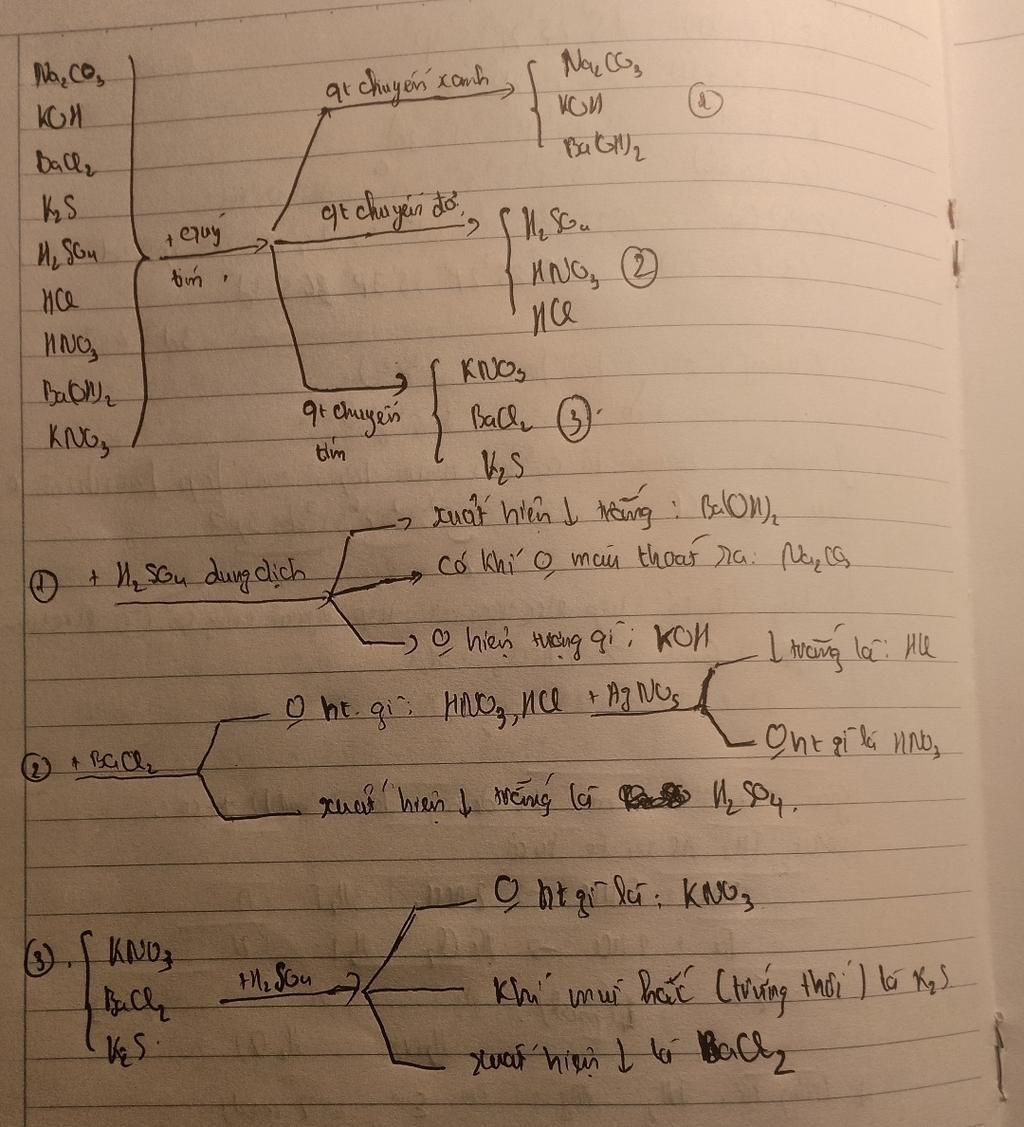 Na₂CO₃
KOH
BaCl₂
K₂S
H₂SO₄
HCl
HNO₃
Ba(OH)₂
KNO₃
+ quỳ
tím
qt chuyển xanh
Na₂CO₃
KOH
Ba(OH)₂
①
qt chuyển đỏ
H₂SO₄
HNO₃ ②
HCl
qt chuyển
tím
KNO₃
BaCl₂ ③
K₂S
① + H₂SO₄ dung dịch
xuất hiện ↓ trắng : Ba(OH)₂
có khí O màu thoát ra: Na₂CO₃
O hiện tượng gì : KOH
② + BaCl₂
O ht. gì : HNO₃, HCl + AgNO₃
↓ trắng là : HCl
O ht gì là HNO₃
xuất hiện ↓ trắng là H₂SO₄.
③. KNO₃
BaCl₂
K₂S.
+H₂SO₄
O ht gì là : KNO₃
Khí mùi hắc (trứng thối) là K₂S
xuất hiện ↓ là BaCl₂